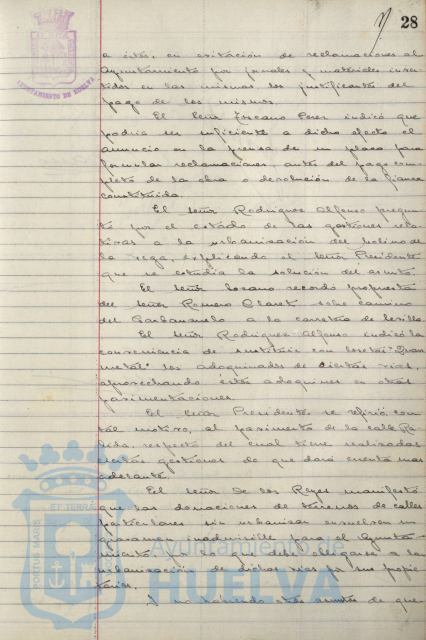 28
AYUNTAMIENTO DE HUELVA
a éstos, en evitación de reclamaciones al
Ayuntamiento por jornales y materiales inver-
tidos en las mismas los justificantes del
pago de los mismos.
El Señor Lozano Perez indicó que
podría ser suficiente a dicho efecto el
anuncio en la prensa de un plazo para
formular reclamaciones, antes del pago com-
pleto de la obra o devolución de la fianza
constituida.
El Señor Rodriguez Alfonso pregun-
tó por el estado de las gestiones rela-
tivas a la urbanización del Molino de
la Vega, explicando el Señor Presidente
que se estudia la solución del asunto.
El Señor Lozano recordó propuesta
del Señor Romero Claret sobre camino
del a la carretera de Sevilla.
El Señor Rodriguez Alfonso indicó la
conveniencia de sustituir con losetas "Gran
metal" los adoquinados de ciertas vías,
aprovechando éstos adoquines en otras
pavimentaciones.
El Señor Presidente se refirió con
tal motivo, al pavimento de la calle Rá-
bida, respecto del cual tiene realizadas
ciertas gestiones de que dará cuenta mas
adelante.
El Señor De los Reyes manifestó
que las donaciones de terrenos de calles
particulares sin urbanizar envuelven un
gravamen inadmisible para el Ayunta-
miento, y que debe obligarse a la
urbanización de dichas vías por sus propie-
tarios.
Y no habiendo otros asuntos de que
Ayuntamiento de
HUELVA
PORTUS MARIS ET TERRAE